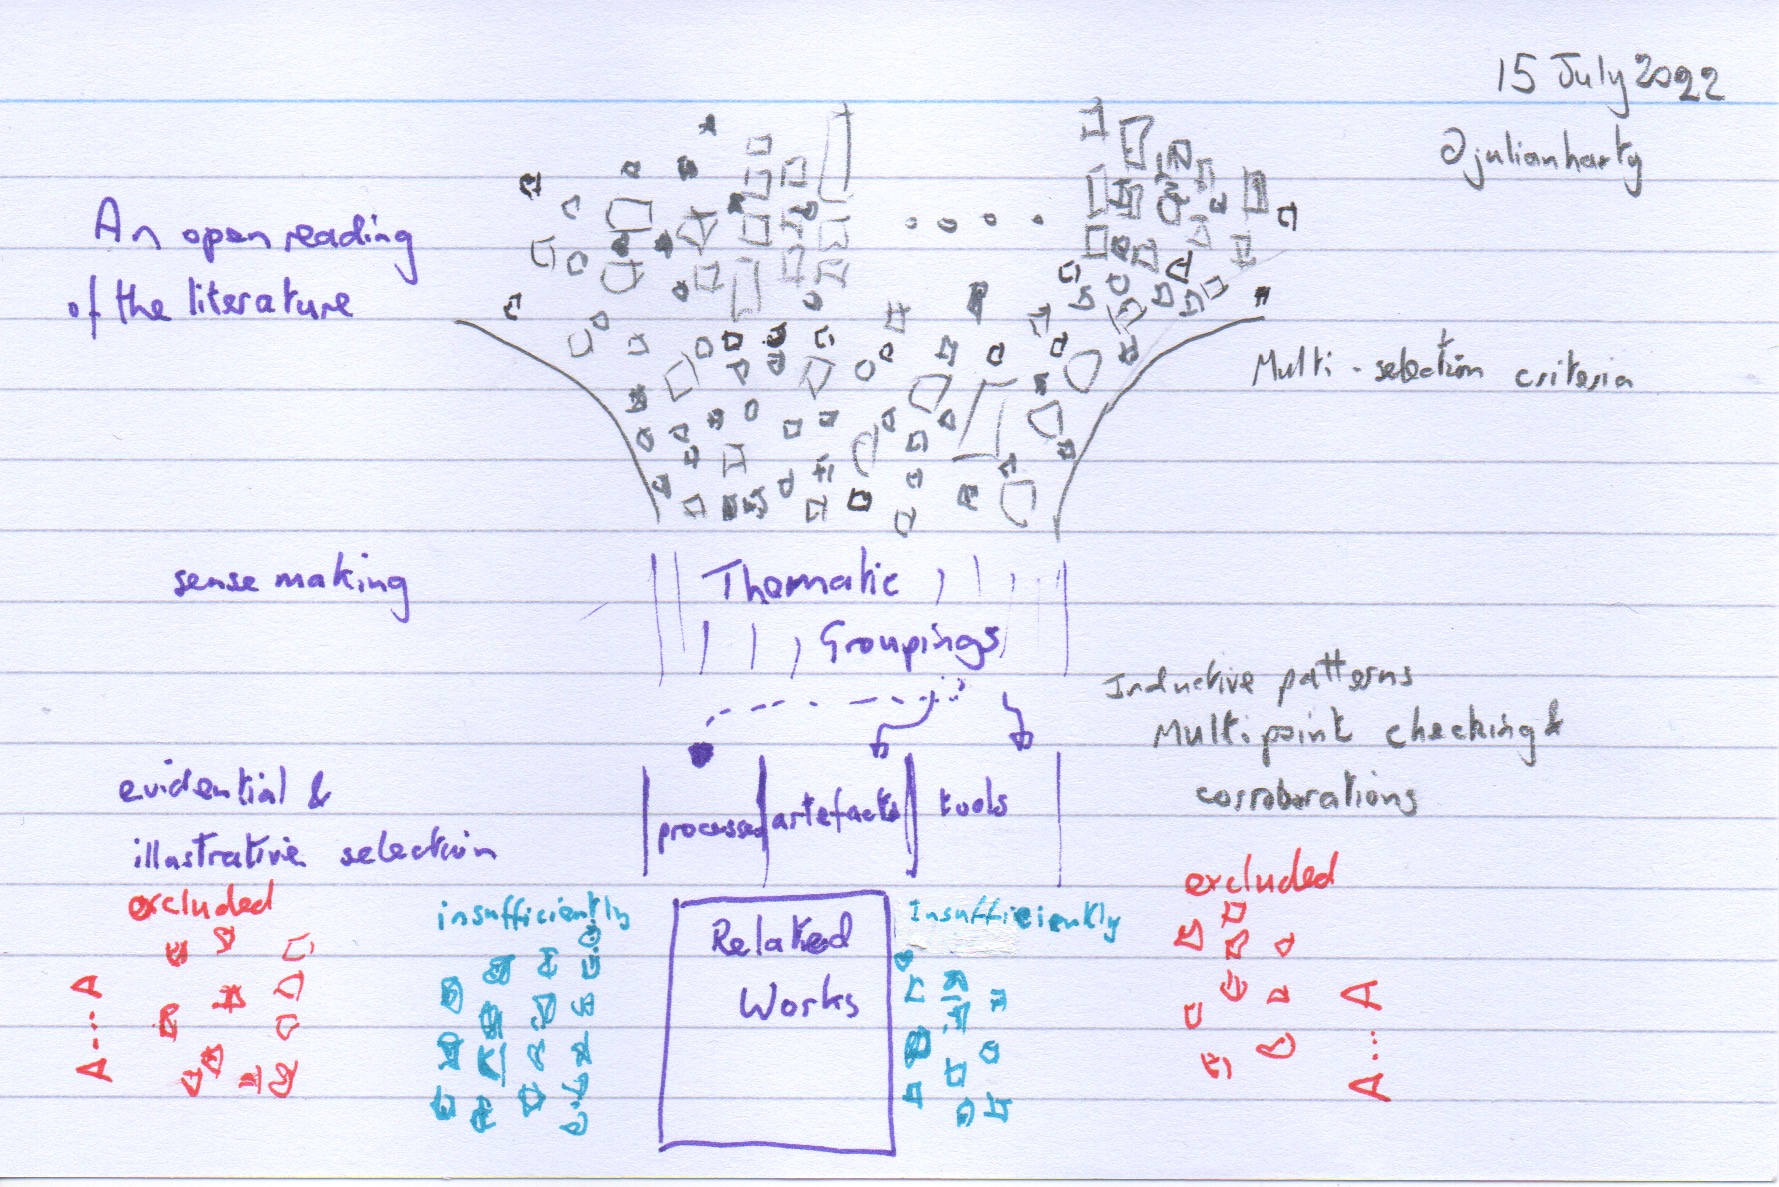 15 July 2022
@julianharty
An open reading
of the literature
Multi-selection criteria
sense making
Thematic
Groupings
Inductive patterns
Multipoint checking &
corroborations
evidential &
illustrative selection
processes
artefacts
tools
excluded
insufficiently
Related
Works
Insufficiently
excluded